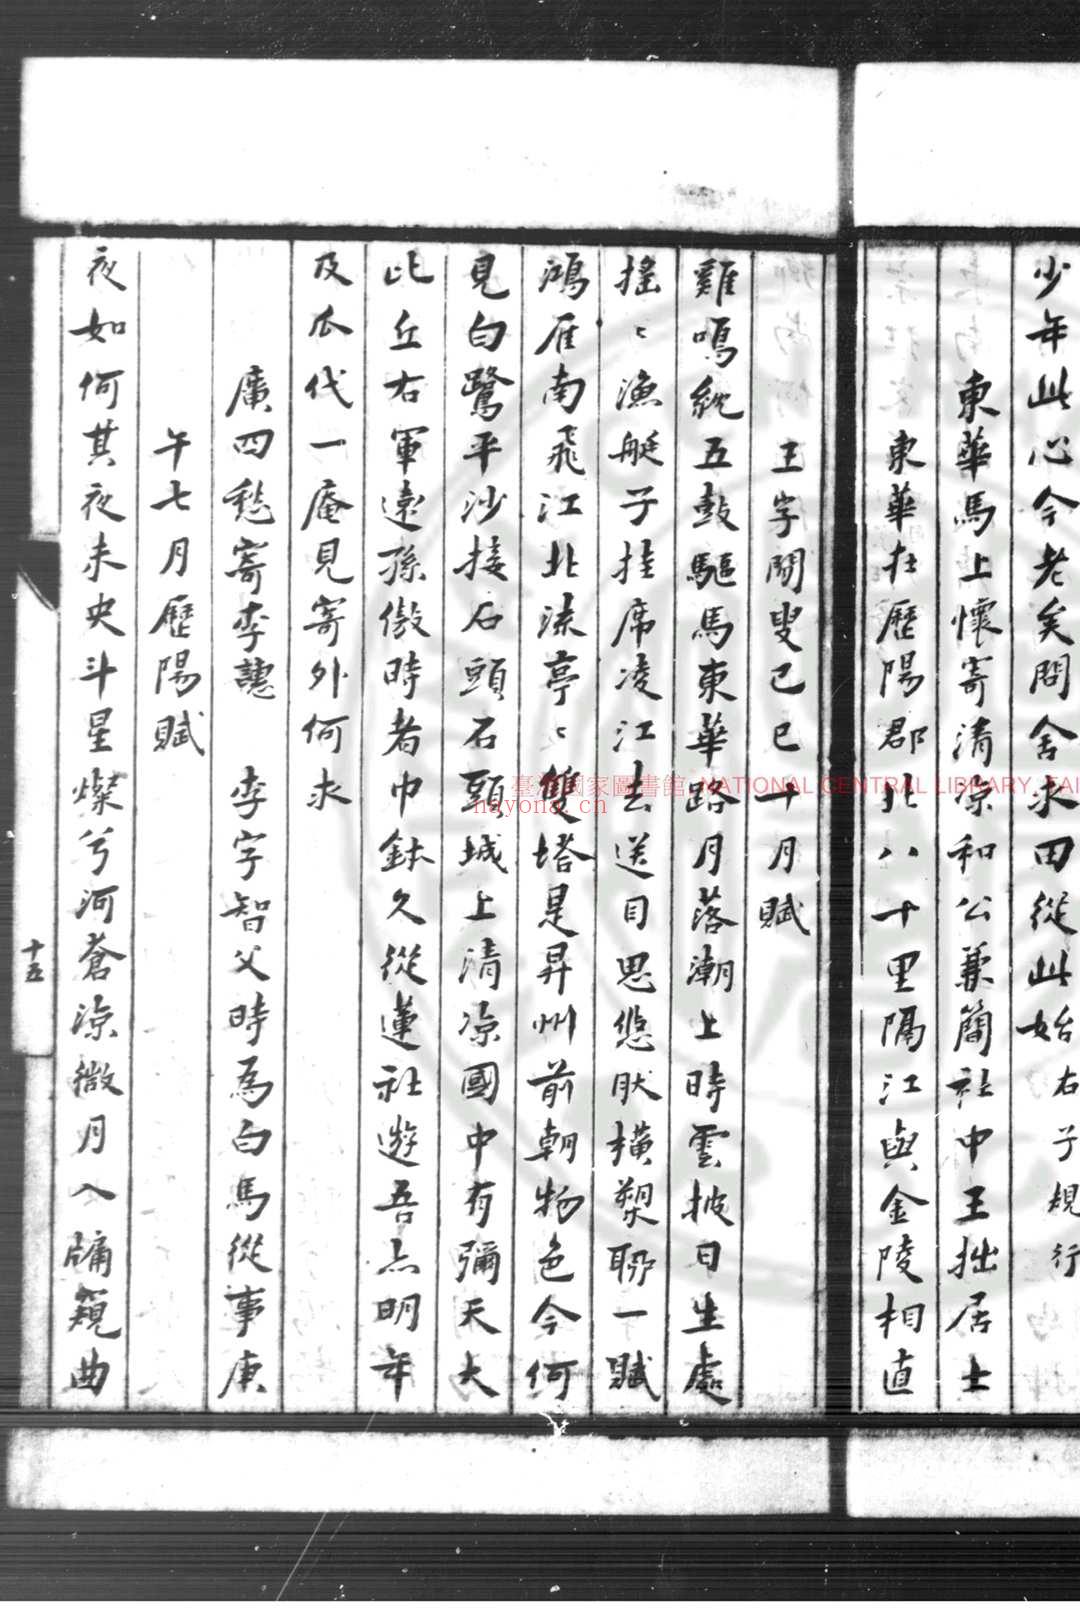 少年此心今老矣問舍求田從此始右子規行
東華馬上懷寄清涼和公兼簡社中王拙居士
東華在歷陽郡北八十里隔江與金陵相直
王字闘叟己巳十月賦
雞鳴紞五鼓驅馬東華路月落潮上時雲披日生處
搖〻漁艇子挂席凌江去送目思悠肰橫槊聊一賦
鴻雁南飛江北流亭〻雙塔是昇州前朝物色今何
見白鷺平沙接石頭石頭城上清涼國中有彌天大
比丘右軍遠孫儌時者巾鉢久從蓮社遊吾亦明年
及瓜代一庵見寄外何求
廣四愁寄李譓 李字智父時為白馬從事庚
午七月歷陽賦
夜如何其夜未央斗星燦兮河蒼涼微月入牗窺曲
十五
臺灣國家圖書館 NATIONAL CENTRAL LIBRARY, TAI
nayona.cn